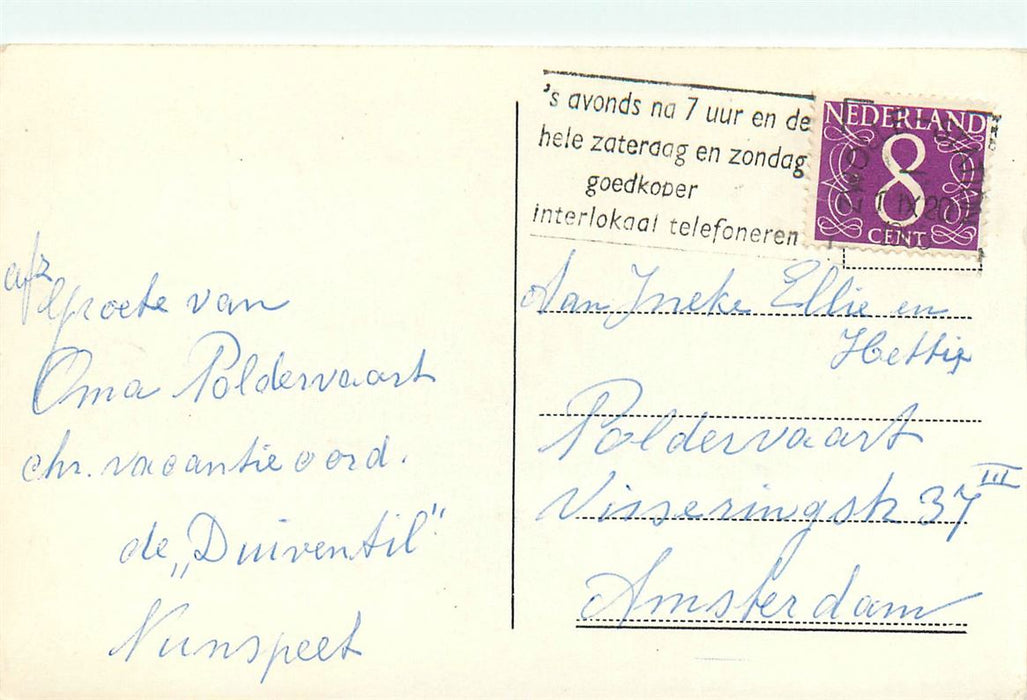 afz
Groete van
Oma Poldervaart
chr. vacantie oord.
de „Duiventil"
Nunspeet
's avonds na 7 uur en de
hele zaterdag en zondag
goedkoper
interlokaal telefoneren
NEDERLAND
8
CENT
Aan Ineke Ellie en
Hettie
Poldervaart
Visseringstr 37 III
Amsterdam